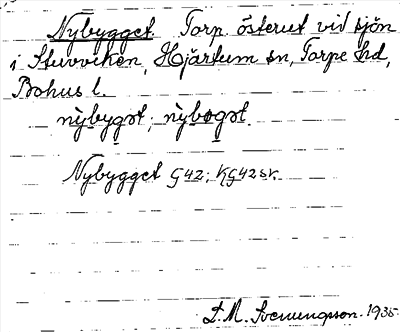 Nybygget Torp österut vid sjön
i Stuvviken, Hjärtum sn, Torpe hd,
Bohus l.
nỳbygət; nỳbogət.
Nybygget G42; KG42sv.
D.M. Svenungsson. 1935.